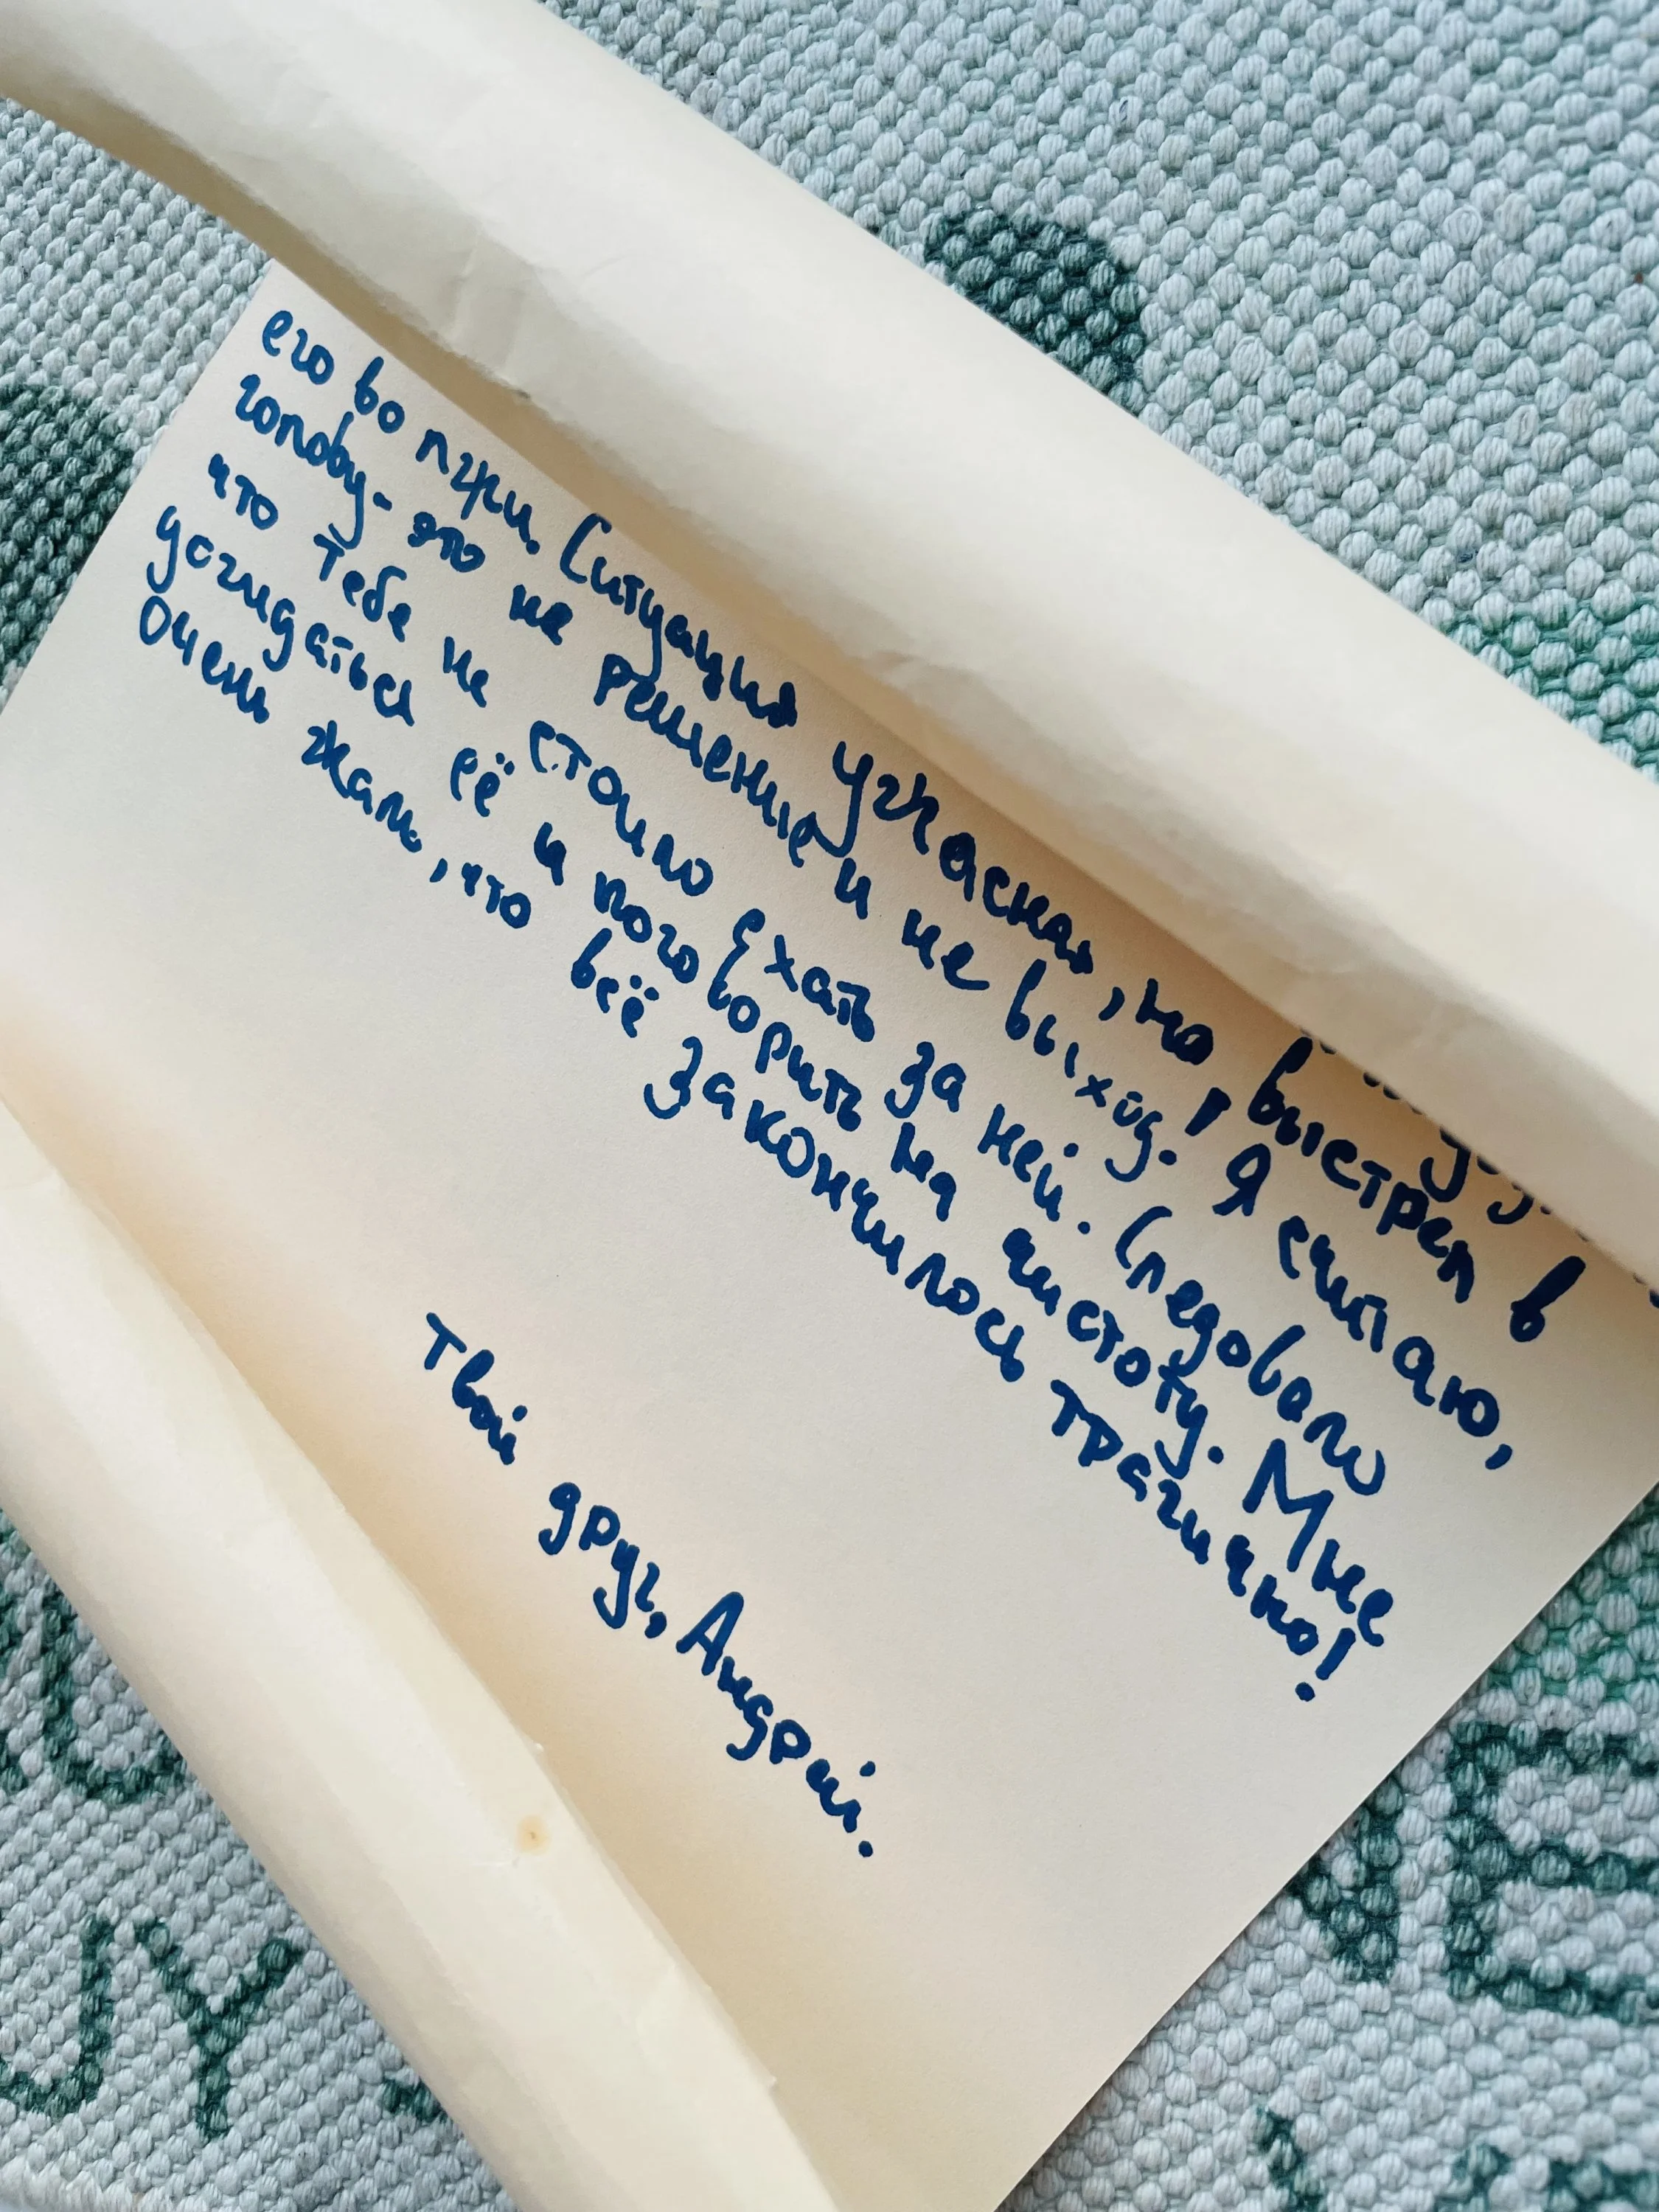 его во лжи. Ситуация ужасная, но выстрел в
голову - это не решение и не выход! Я считаю,
что тебе не стоило ехать за ней. Следовало
догидаться её и поговорить на чистоту. Мне
Очень жаль, что всё закончилось трагично!
Твой друг, Андрей.